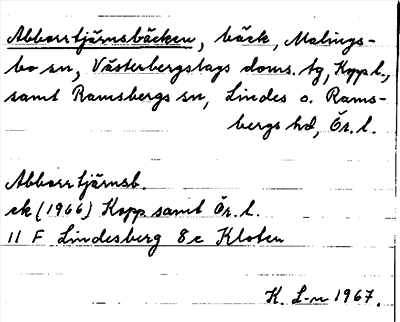 Abborrtjärnsbäcken, bäck, Malings-
bo sn, Västerbergslags doms. tg, Kopp l.,
samt Ramsbergs sn, Lindes o. Rams-
bergs hd, Ör. l.
Abborrtjärnsb.
ek (1966) Kopp samt Ör. l.
11 F Lindesberg 8 c Kloten
K. L-n 1967.